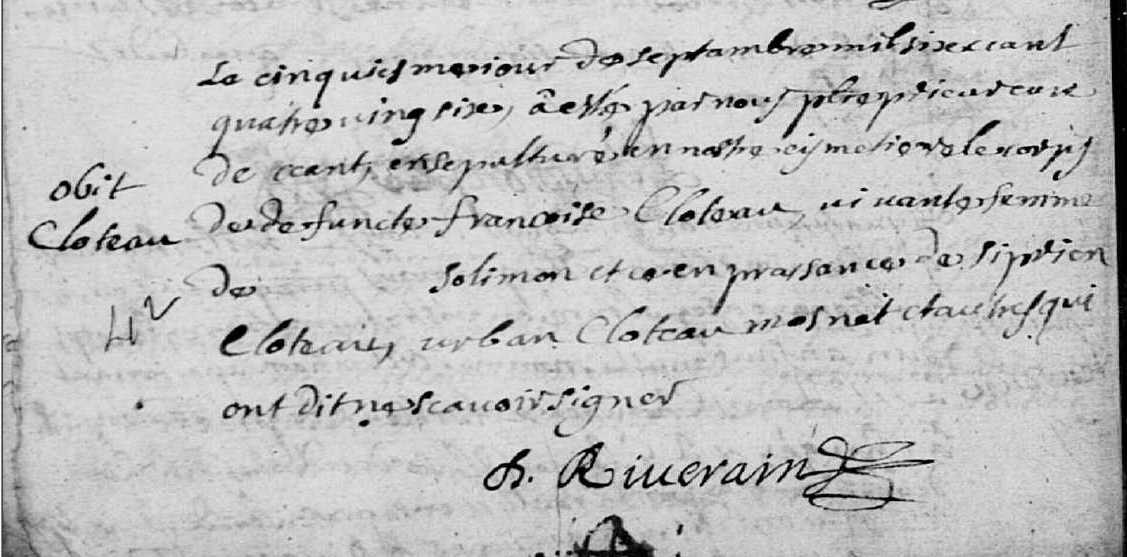 Le cinquiesme iour de septambre mil six cant
quatre ving six, a esté par nous pbre prieur curé
de ceant, ensepulturé en nostre cymetiere le corps
obit
Cloteau
de defuncte francoise Cloteau, vivante femme
de solimon et ce en praesance de siprien
42
Cloteau, urban Cloteau mesnet et autres qui
ont dit ne scavoir signer
Riuerain